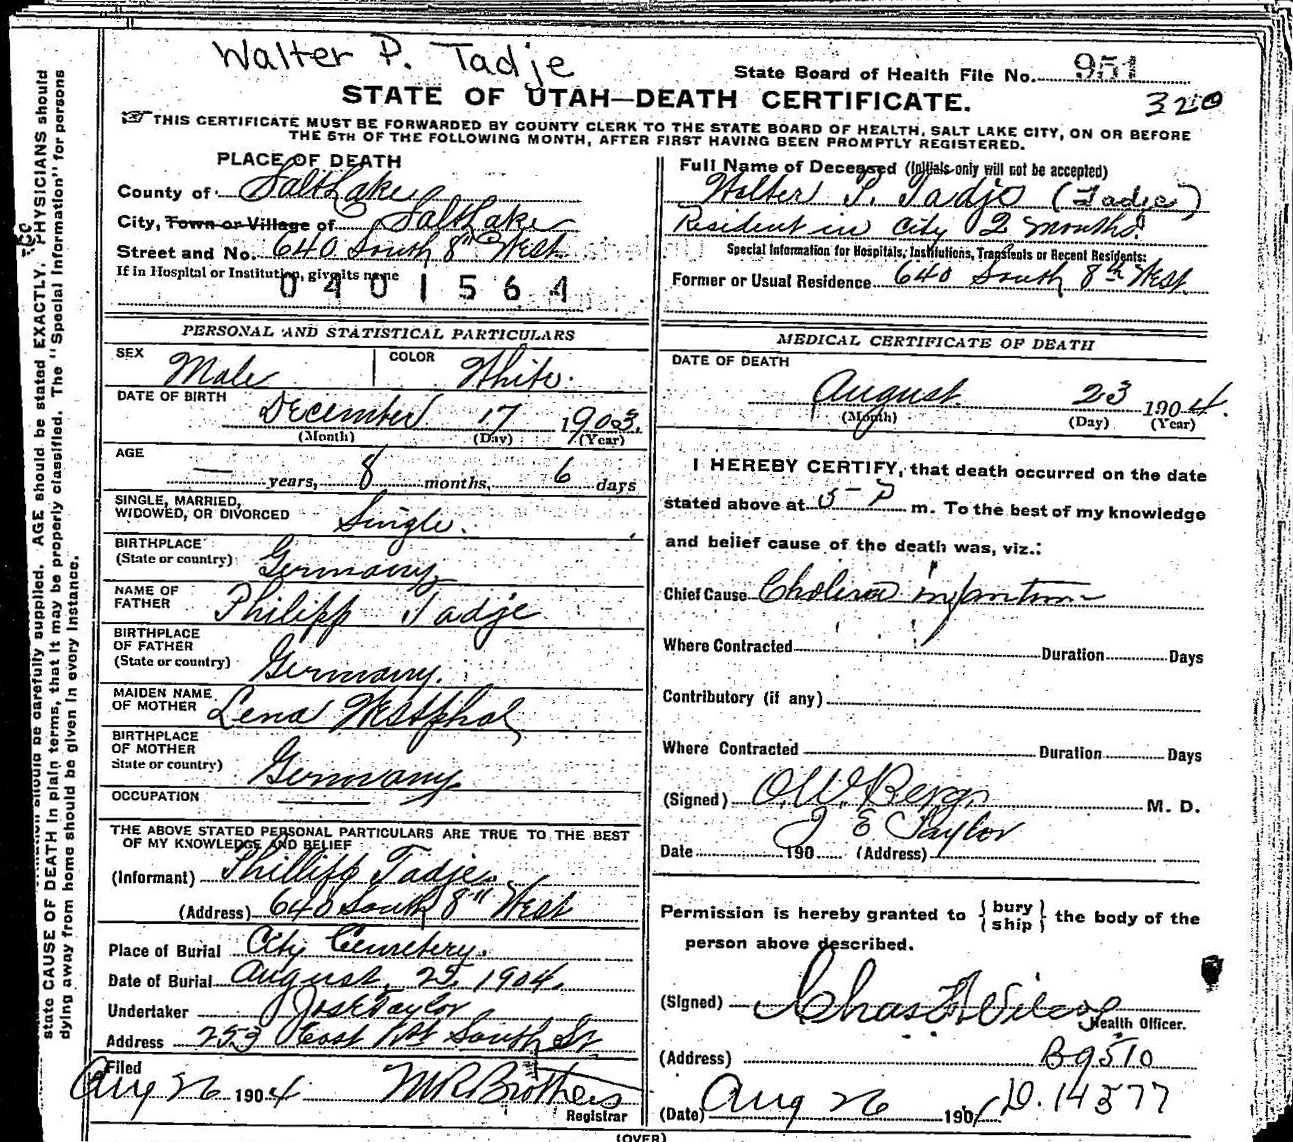 Walter P. Tadje
State Board of Health File No. 951
320
STATE OF UTAH—DEATH CERTIFICATE.
THIS CERTIFICATE MUST BE FORWARDED BY COUNTY CLERK TO THE STATE BOARD OF HEALTH, SALT LAKE CITY, ON OR BEFORE
THE 5TH OF THE FOLLOWING MONTH, AFTER FIRST HAVING BEEN PROMPTLY REGISTERED.
PLACE OF DEATH
County of Salt Lake
City, Town or Village of Salt Lake
Street and No. 640 South 8th West
If in Hospital or Institution, give its name
0401564
Full Name of Deceased (Initials only will not be accepted)
Walter P. Tadje (Tadje)
Resident in city 2 months.
Special Information for Hospitals, Institutions, Transients or Recent Residents:
Former or Usual Residence 640 South 8th West
PERSONAL AND STATISTICAL PARTICULARS
SEX Male COLOR White.
DATE OF BIRTH
December 17 1903.
(Month) (Day) (Year)
AGE
— years, 8 months, 6 days
SINGLE, MARRIED,
WIDOWED, OR DIVORCED Single.
BIRTHPLACE
(State or country) Germany
NAME OF
FATHER Philipp Tadje
BIRTHPLACE
OF FATHER
(State or country) Germany.
MAIDEN NAME
OF MOTHER Lena Westphal
BIRTHPLACE
OF MOTHER
State or country) Germany
OCCUPATION
THE ABOVE STATED PERSONAL PARTICULARS ARE TRUE TO THE BEST
OF MY KNOWLEDGE AND BELIEF
(Informant) Phillipp Tadje
(Address) 640 South 8th West
Place of Burial City Cemetery.
Date of Burial August 25, 1904.
Undertaker Jos E Taylor
Address 253 East 1st South St
Filed
Aug 26 1904 M R Brothers
Registrar
MEDICAL CERTIFICATE OF DEATH
DATE OF DEATH
August 23 1904.
(Month) (Day) (Year)
I HEREBY CERTIFY, that death occurred on the date
stated above at 5-P m. To the best of my knowledge
and belief cause of the death was, viz.:
Chief Cause Cholera infantum
Where Contracted Duration Days
Contributory (if any)
Where Contracted Duration Days
(Signed) O.W. Berg M. D.
J E Taylor
Date 190 (Address)
Permission is hereby granted to {bury
ship} the body of the
person above described.
(Signed) Chas F Wilcox
Health Officer.
(Address) B9510
(Date) Aug 26 190 D.14377
(OVER)
state CAUSE OF DEATH in plain terms, that it may be properly classified. The "Special Information" for persons
dying away from home should be given in every instance.
should be carefully supplied. AGE should be stated EXACTLY. PHYSICIANS should